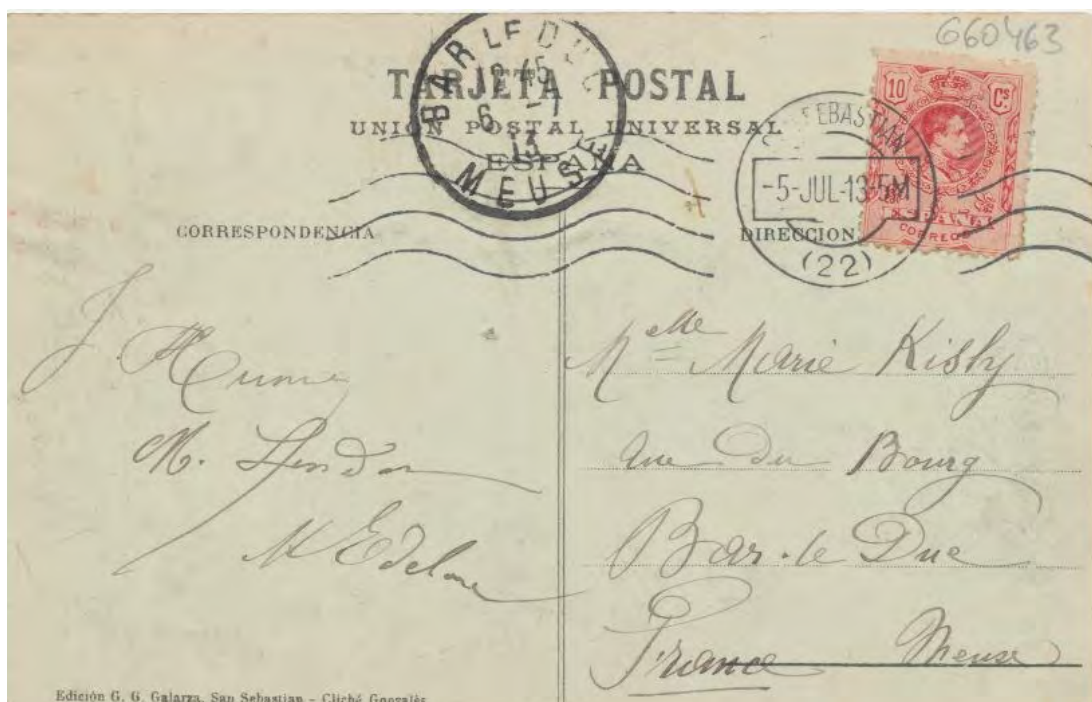 660463
TARJETA POSTAL
UNIÓN POSTAL UNIVERSAL
ESPAÑA
BAR LE DUC
12 45
6 - 7
13
MEUSE
SEBASTIAN
-5-JUL-13-5M
(22)
10 Cs
CORREOS
CORRESPONDENCIA
DIRECCION
J.
M.
M
Melle Marie Kisly
rue du Bourg
Bar-le Duc
France Meuse
Edición G. G. Galarza, San Sebastian - Cliché Gonzalès